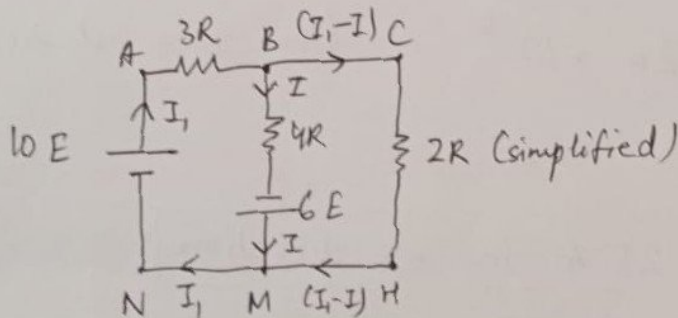 3R
A B (I₁-I) C
I₁ I
10 E 4R 2R (simplified)
6 E
I
N I₁ M (I₁-I) H